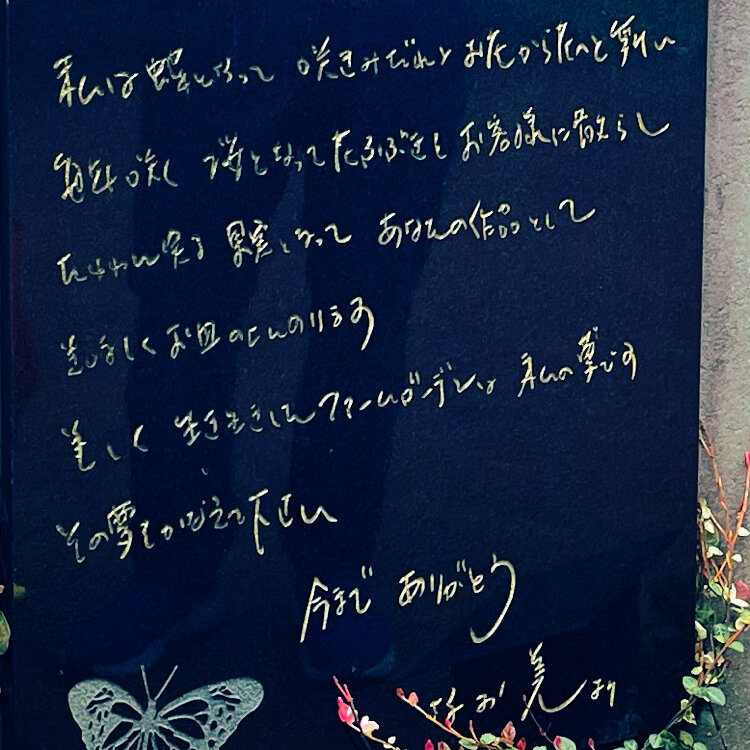 私は蝶となって 咲きみだれる お花から花へと舞い
毎年咲く 桜となって花ふぶきを お客様に散らし
たわわに実る 果実となって あなたの作品として
美味しくお皿の上にのります
美しく 生き生きとしたファームガーデンは 私の夢です
その夢をかなえて下さい
今まで ありがとう
なお美より